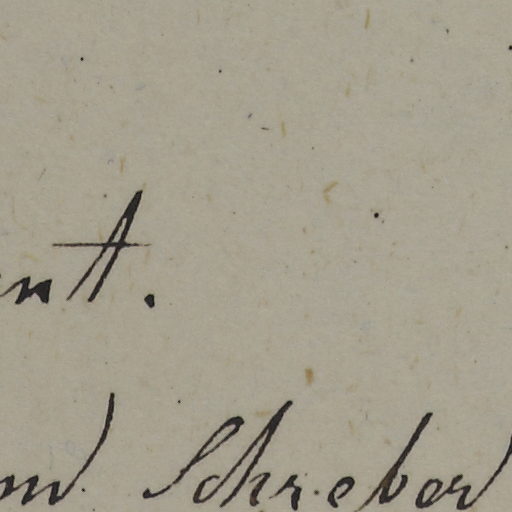 nt.
nd. Schreber